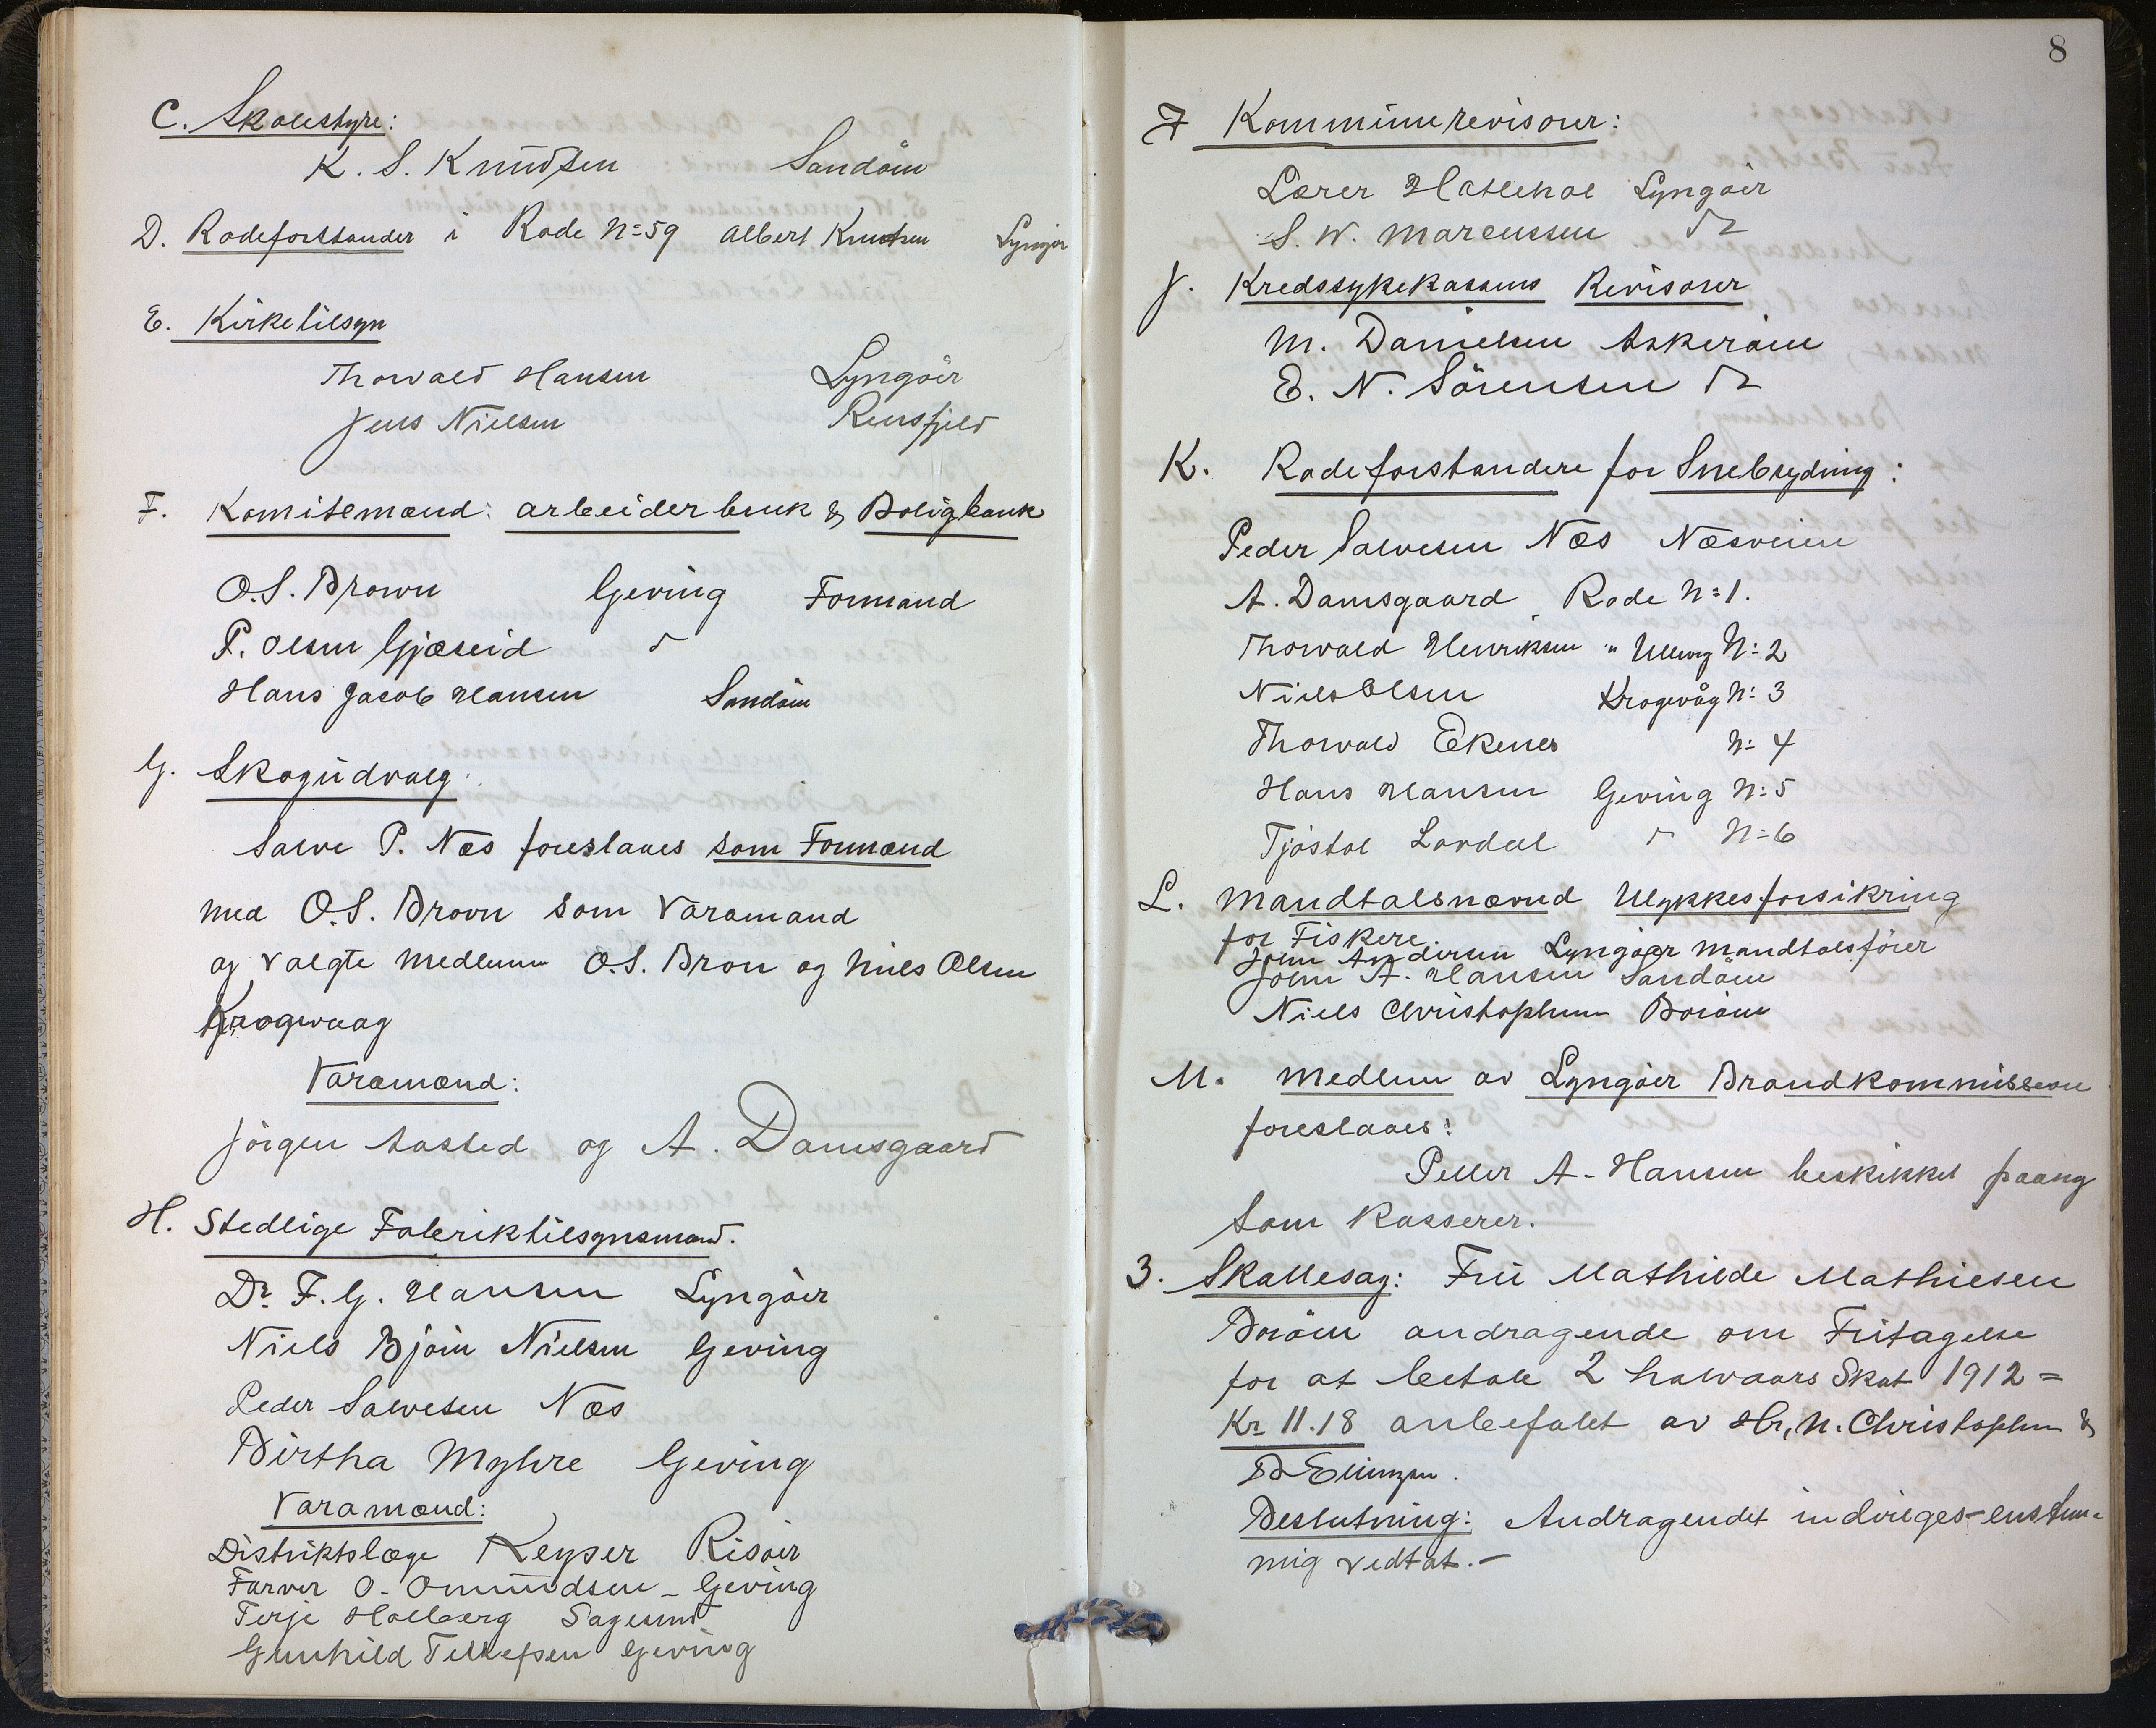 C. Skolestyre:
K. S. Knudsen Sandøen
D. Rodeforstander i Rode No 59 Albert Knutsen Lyngør
E. Kirketilsyn
Thorvald Hansen Lyngöer
Jens Nielsen Rensfjeld
F. Komitemænd: arbeiderbruk & Boligbank
O. S. Brown Gjeving Formand
P. Olsen Gjæseid "
Hans Jacob Hansen Sandöen
G. Skogudvalg
Salve P. Næs foreslaaes som Formænd
med O. S. Brovn som Varamand
og valgte medlemmer O. S. Bron og Niels Olsen
Krogevaag
Varamænd:
Jörgen Aasted og A. Damsgaard
H. Stedlige Fabriktilsynsmænd.
Dr. F. G. Hansen Lyngöer
Niels Bjöin Nielsen Gjeving
Peder Salvesen Næs
Birtha Myhre Gjeving
Varamænd:
Distriktslæge Keyser Risöer
Farver O. Omundsen - Gjeving
Terje Holberg Sagesund
Gunhild Tellefsen Gjeving
8
I Kommunerevisorer:
Lærer Hatlehol Lyngöer
S. W. Marcussen do
J. Kredssykekassens Revisorer
M. Danielsen Askeröen
E. N. Sörensen do
K. Rodeforstandere for Snebrydning:
Peder Salvesen Næs Næsveien
A. Damsgaard Rode No 1.
Thorvald Henriksen " Ullevg No 2
Niels Olsen Krogevåg No 3
Thorvald Ekenes No 4
Hans Hansen Gjeving No 5
Tjöstol Lövdal " No 6
L. Mandtalsnævnd Ulykkesforsikring
for Fiskere.
John Andersen Lyngöer Mandtalsförer
John A. Hansen Sandöen
Niels Christophersen Boröen
M. Medlem av Lyngöer Brandkommission
foreslaaes:
Petter A. Hansen beskikket paany
som Kasserer.
3. Skattesag: Fru Mathilde Mathiesen
Boröen andragende om Fritagelse
for at betale 2 halvaars Skat 1912 =
Kr 11.18 anbefalet av Hr. N. Christophersen &
Beslutning: Andragendet indvilges - enstem-
mig vedtat. -